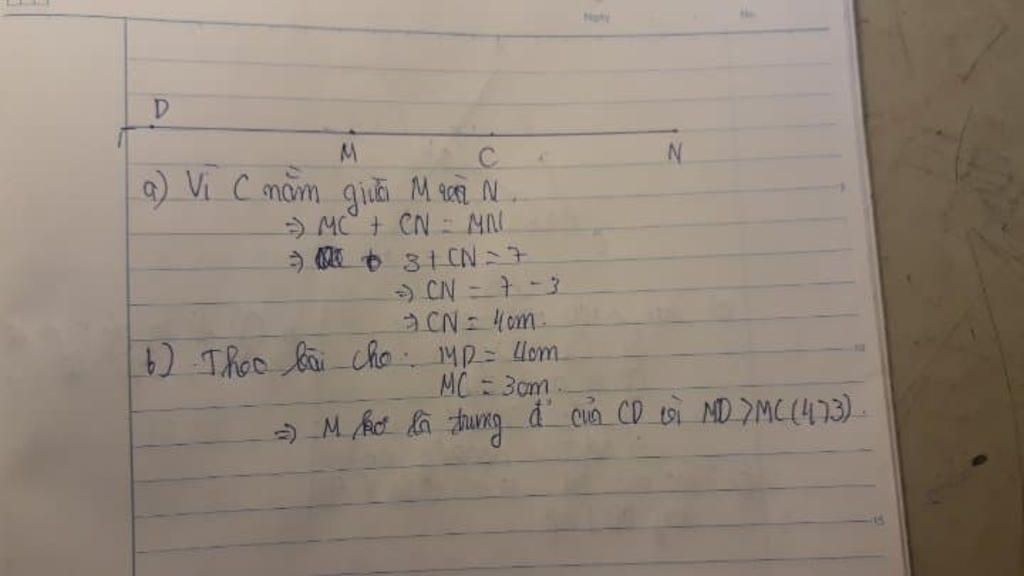 Ngày No.
D
M C N
a) Vì C nằm giữa M và N.
=> MC + CN = MN
=> 3 + CN = 7
=> CN = 7 - 3
=> CN = 4cm.
b) Theo bài cho: MD = 4cm
MC = 3cm.
=> M ko là trung đ' của CD vì MD > MC (4>3).
10
15